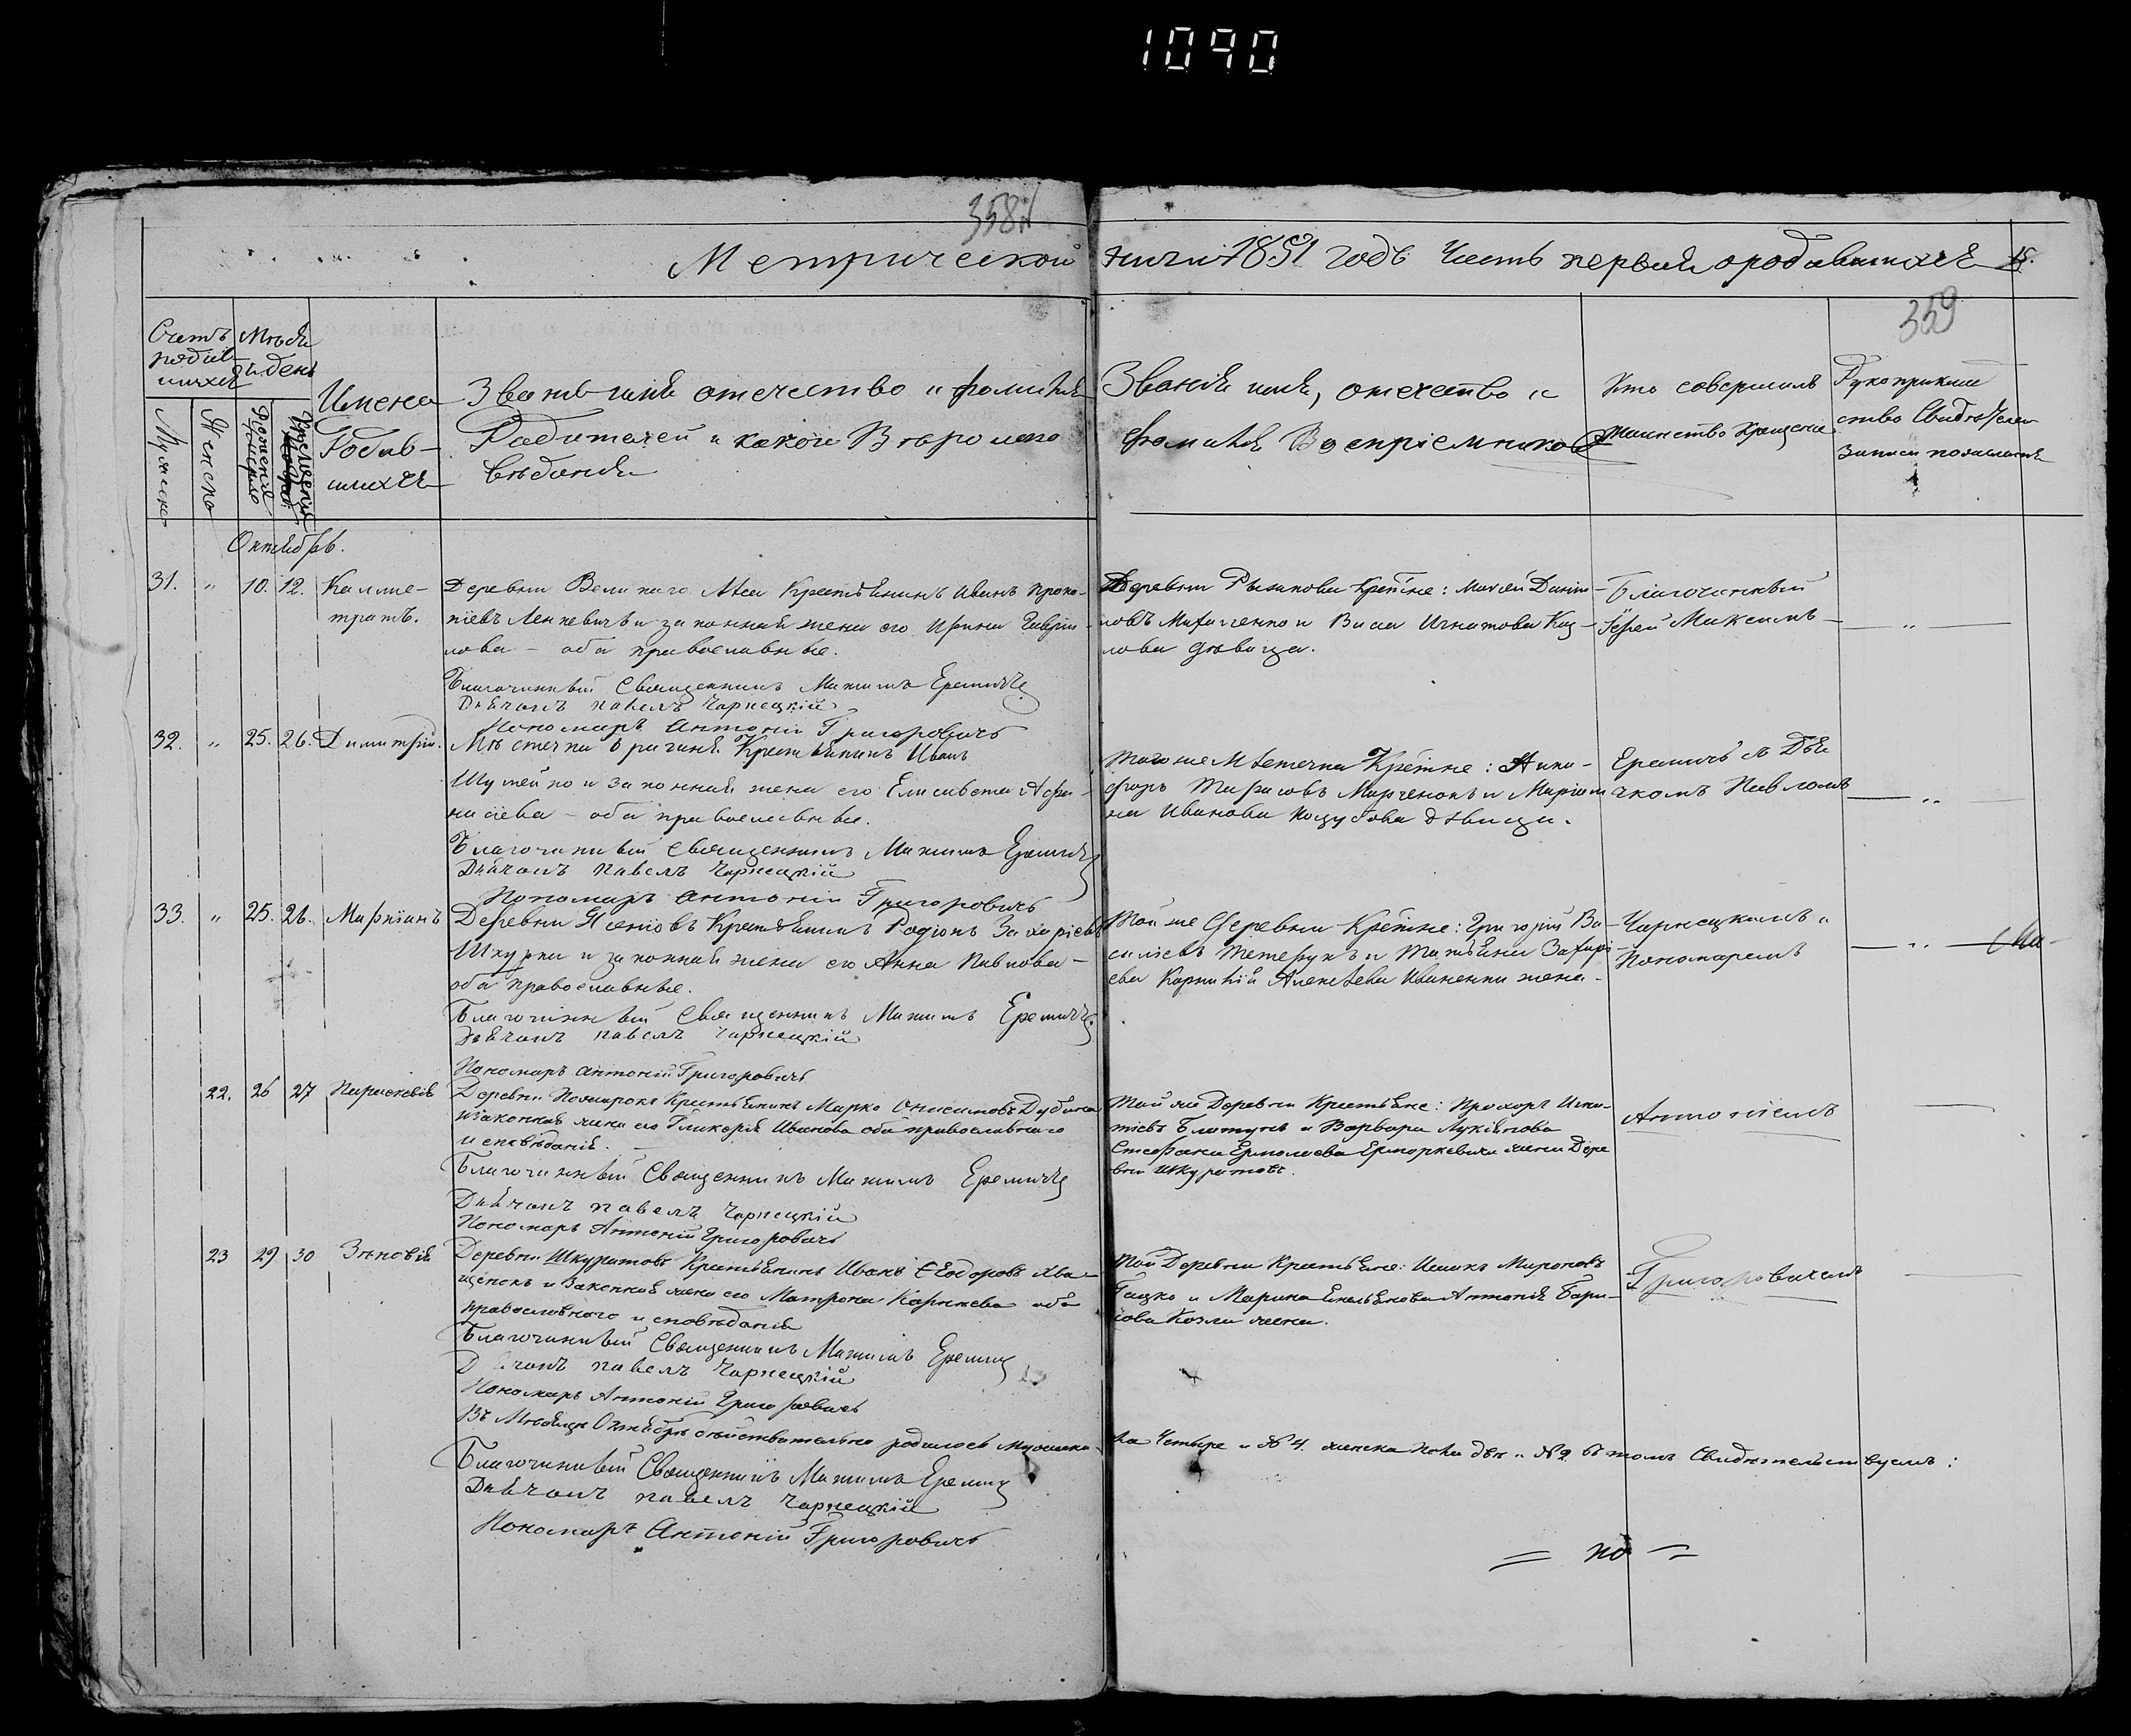 1090
358
Метрической книги 1851 годъ Часть первая о родившихся 15.
359
Счетъ родив-
шихся
Мѣсяцъ и день
Мужеска
Женска
Рожденія
Крещенія
Имена
Родив-
шихся
Званіе имя отечество и фамилія
Родителей и какого Вѣроиспо
вѣданія
Званія имя, отечество и
фамилія Воспріемниковъ
Кто совершилъ
таинство Крещенія
Рукоприклад
ство Свидѣтелей
записи по желанію
Октябрь.
31. " 10. 12. Каллис-
тратъ.
Деревни Великаго Лѣса Крестьянинъ Иванъ Проко-
піевъ Ленкевичъ и законная жена его Ирина Гаврии-
лова - оба православные.
Благочинный Священникъ Максимъ Еремичъ
Дьячокъ Павелъ Чарнецкій
Пономаръ Антоній Григоровичъ
Деревни Крѣстне: Матѳей Дании-
ловъ и Васа Игнатова Коз-
лова дѣвица.
Благочинный
Іерей Максимъ
32. " 25. 26. Димитрій.
Мѣстечка Крестьянинъ Иванъ
Шутейко и законная жена его Елисавета Афа-
насіева - оба православные.
Благочинный Священникъ Максимъ Еремичъ
Дьячокъ Павелъ Чарнецкій
Пономаръ Антоній Григоровичъ
того же Мѣстечка Крѣстне: Ники-
форъ Тарасовъ Марченокъ и Маріам
на Иванова дѣвица.
Еремичъ съ Дья
чкомъ Павломъ
33. " 25. 26. Маркіанъ
Деревни Крестьянинъ Родіонъ Захаріевъ
Шкурка и законная жена его Анна Павлова -
оба православные.
Благочинный Священникъ Максимъ Еремичъ.
Дьячокъ Павелъ Чарнецкій
Пономаръ Антоній Григоровичъ
Той же Деревни Крѣстне: Григорій Ва-
силіевъ Тетерукъ и Татьяна Захарі-
ева Алексѣева Иваненки жена -
Чарнецкимъ и
Пономаремъ
22. 26 27 Параскевія
Деревни Крестьянинъ Марко Онисимовъ Дубина
и законная жена его Гликерія Иванова оба православнаго
исповѣданія.
Благочинный Священникъ Максимъ Еремичъ
Дьячокъ Павелъ Чарнецкій
Пономаръ Антоній Григоровичъ
Той же Деревни Крестьяне: Прохоръ Игна-
тіевъ и Варвара Лукіянова
Стефана Ермолаева жена Дере
вни Шкуратовъ.
Антоніемъ
23 29 30 Зѣновія
Деревни Шкуратовъ Крестьянинъ Иванъ Ѳеодоровъ Хва-
щенокъ и Законная жена его Матрона Карпиева оба
православнаго исповѣданія
Благочинный Священникъ Максимъ Еремичъ
Дьячокъ Павелъ Чарнецкій
Пономаръ Антоній Григоровичъ
Той Деревни Крестьяне: Мироновъ
Гацко и Марина Емельянова Антонія Бари-
сова Козла жена.
Григоровичемъ
Въ Мѣсяцѣ Октябрѣ дѣйствительно родилось мужеска
пола Четыре и № 4. женска пола двѣ и № 2. въ томъ Свидѣтельствуемъ:
Благочинный Священникъ Максимъ Еремичъ
Дьячокъ Павелъ Чарнецкій
Пономаръ Антоній Григоровичъ
= по =